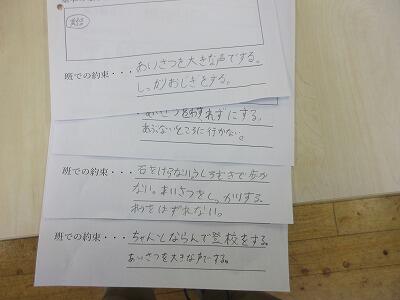 班での約束・・・あいさつを大きな声でする。
しっかりおじぎをする。
あいさつをわすれずにする。
あぶないところに行かない。
班での約束・・・石をけらないうしろむきで歩か
ない。あいさつをしっかりする。
れつをはずれない。
班での約束・・・ちゃんとならんで登校をする。
あいさつを大きな声でする。